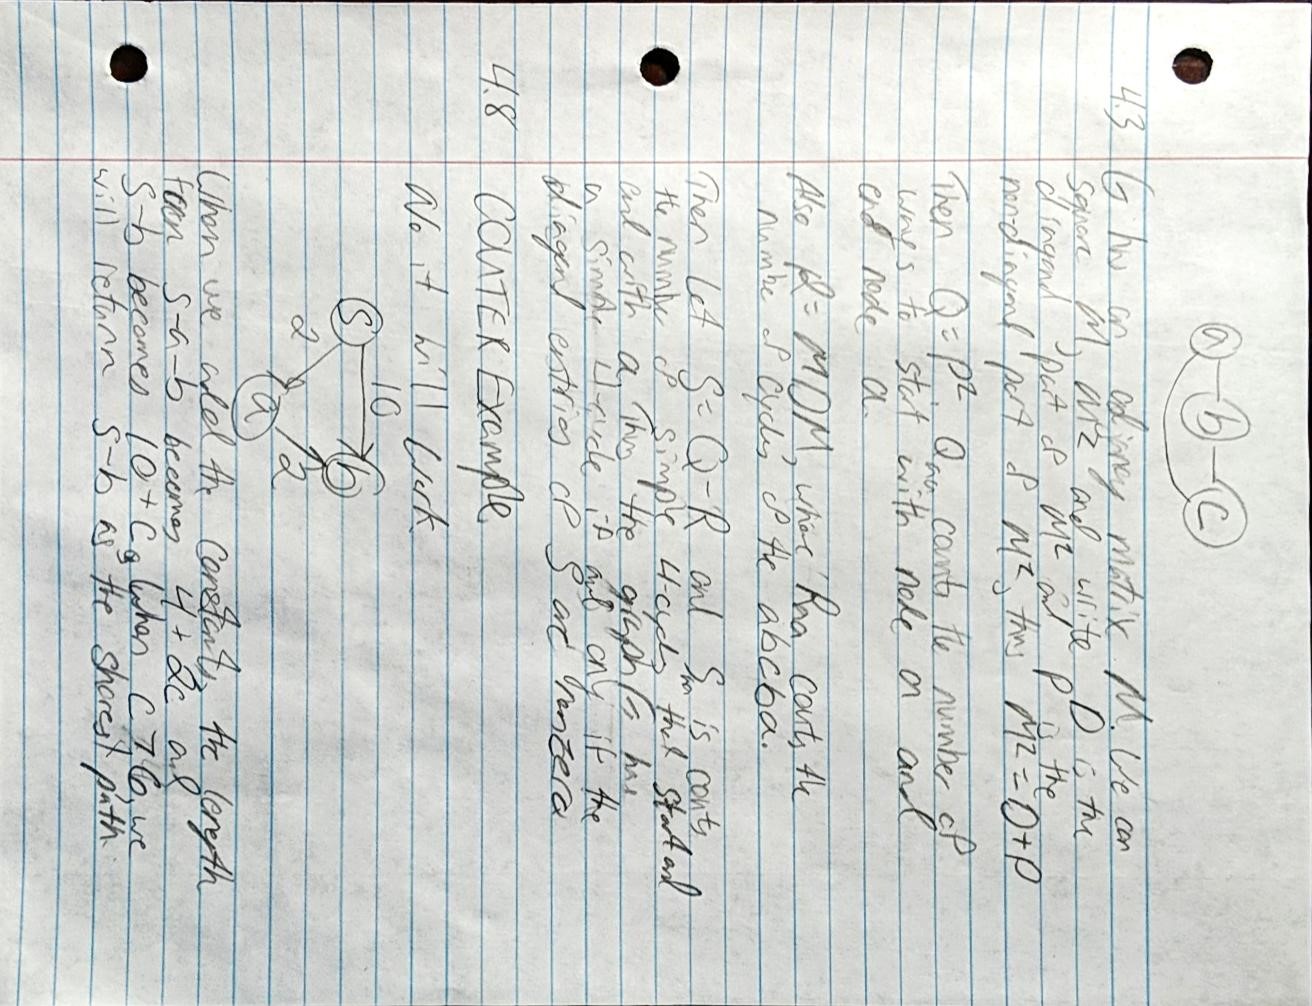 a b c
4.3 G has an adjacency matrix M. We can
square M, M² and write D is the
diagonal part of M² and P is the
nondiagonal part of M², thus M² = D+P
Then Q = P². Qaa counts the number of
ways to start with node a and
end node a.
Also R = MDM, where Raa counts the
number of cycles of the abcba.
Then Let S = Q-R and Saa is counts
the number of simple 4-cycles that start and
end with a, Thus the graph G has
a simple 4-cycle if and only if the
diagonal entries of S are nonzero
4.8 COUTER Example,
No it will Work.
S 10 b
2 a 2
When we add the constant, the length
from S-a-b becomes 4 + 2c and
S-b becomes 10 + c, when c > 6, we
will return S-b as the shorest path.